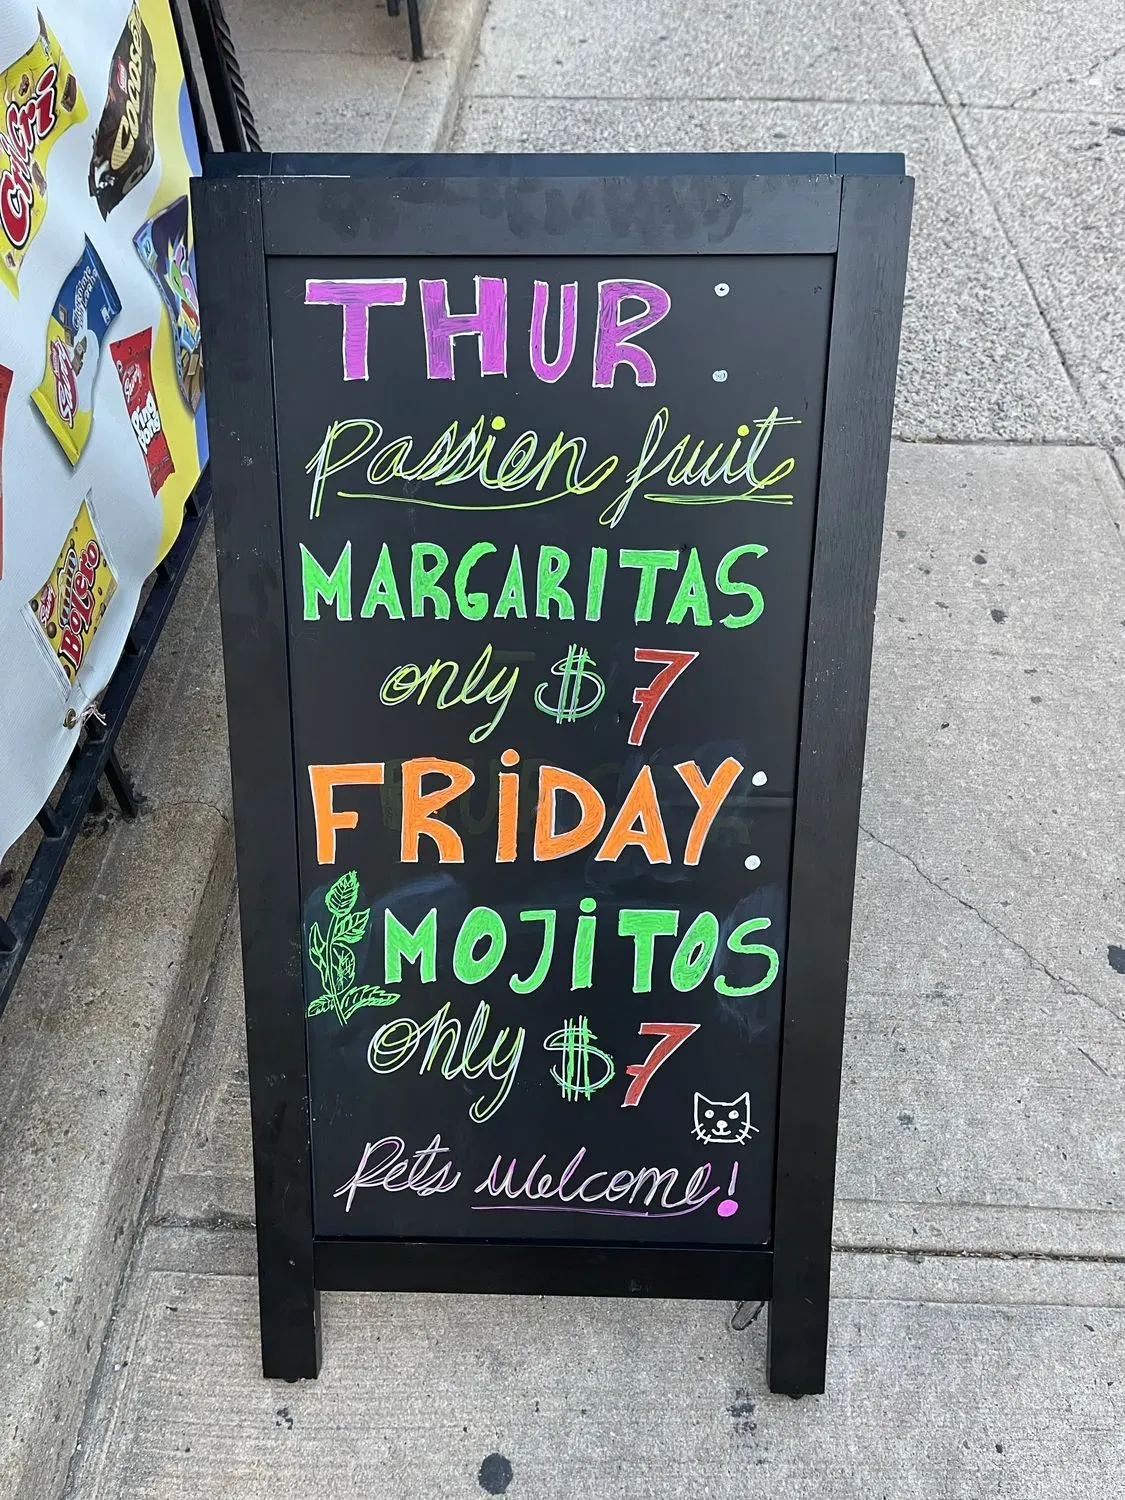 THUR:
Passion fruit
MARGARITAS
only $7
FRiDAY:
MOJiTOS
only $7
Pets Welcome!
CriCri
COCOSETTE
Susy
Ping Pong
Bolero